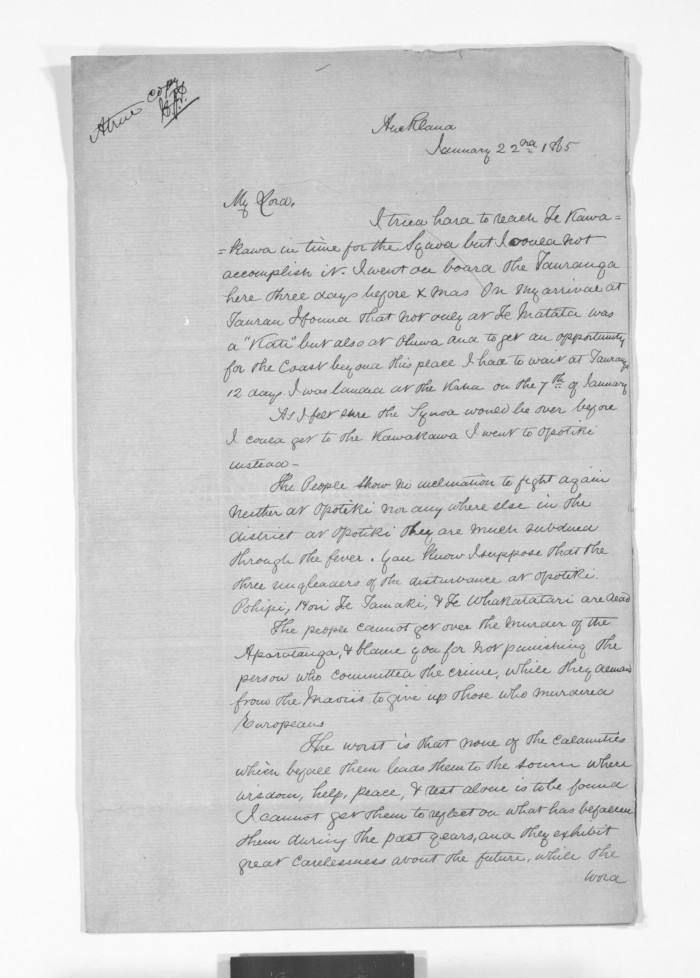 A true copy
Auckland
January 22nd 1865
My Lord,
I tried hard to reach Te Kawa=
=kawa in time for the Synod but I could not
accomplish it. I went on board the Tauranga
here three days before Xmas On my arrival at
Tauran I found that not only at Te Matata was
a "Kati" but also at Ohiwa and to get an opportunity
for the Coast beyond this place I had to wait at Taurang
12 days I was landed at the Kaha on the 7th of January
As I felt sure the Synod would be over before
I could get to the Kawakawa I went to Opotiki
instead -
The People show no inclination to fight again
neither at Opotiki nor any where else in the
district at Opotiki they are much subdued
through the fever. You know I suppose that the
three ringleaders of the disturbance at Opotiki.
Pohipi, Hori Te Tamaki, & Te Whakatatari are dead
The people cannot get over the murder of the
Aparatanga, & blame you for not punishing the
person who committed the crime, while they deman
from the Maoriis to give up those who murdered
Europeans
The worst is that none of the calamities
which befall them leads them to the sourse where
wisdom, help, peace, & rest alone is to be found
I cannot get them to reflect on what has befallen
them during the past years, and they exhibit
great carelessness about the future, while the
word